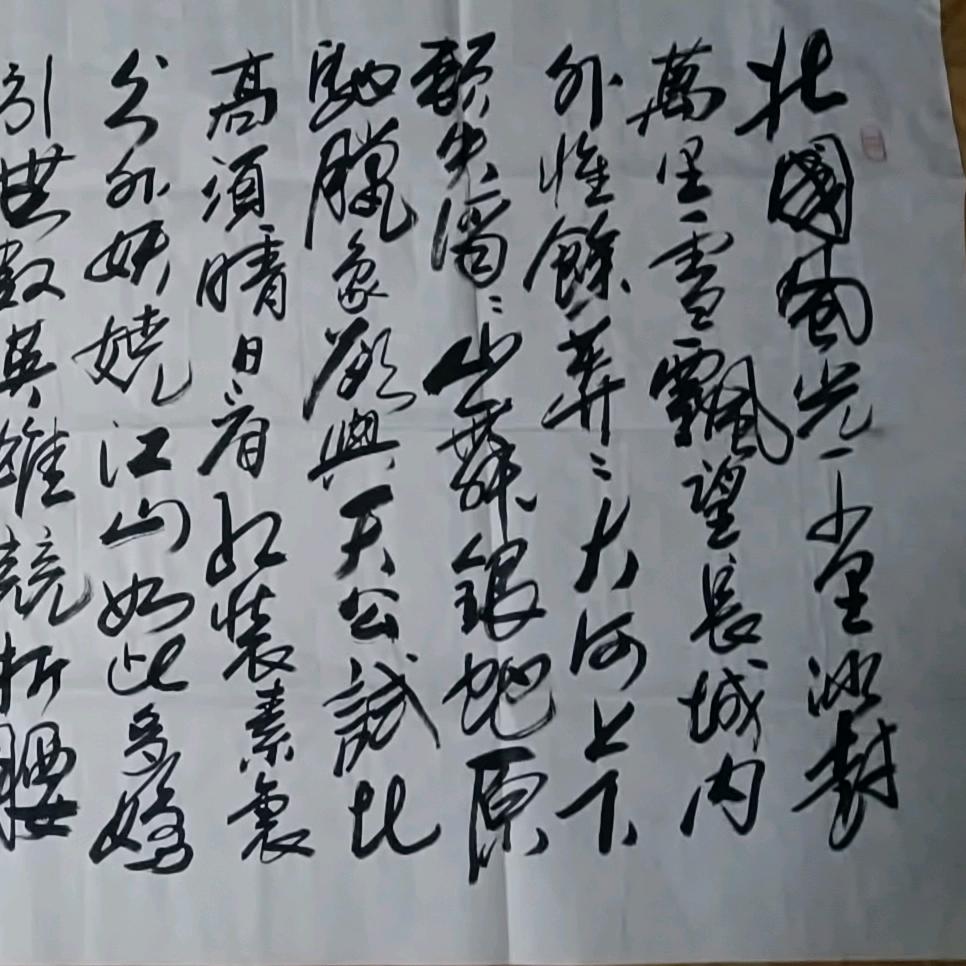 北國風光千里冰封
萬里雪飄望長城內
外惟餘莽〻大河上下
頓失滔〻山舞銀蛇原
馳臘象欲與天公試比
高須晴日看紅裝素裹
分外妖嬈江山如此多嬌
引無數英雄競折腰